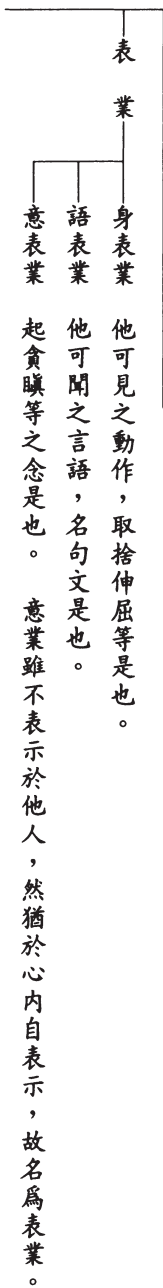 表業
身表業　他可見之動作，取捨伸屈等是也。
語表業　他可聞之言語，名句文是也。
意表業　起貪瞋等之念是也。　意業雖不表示於他人，然猶於心內自表示，故名爲表業。